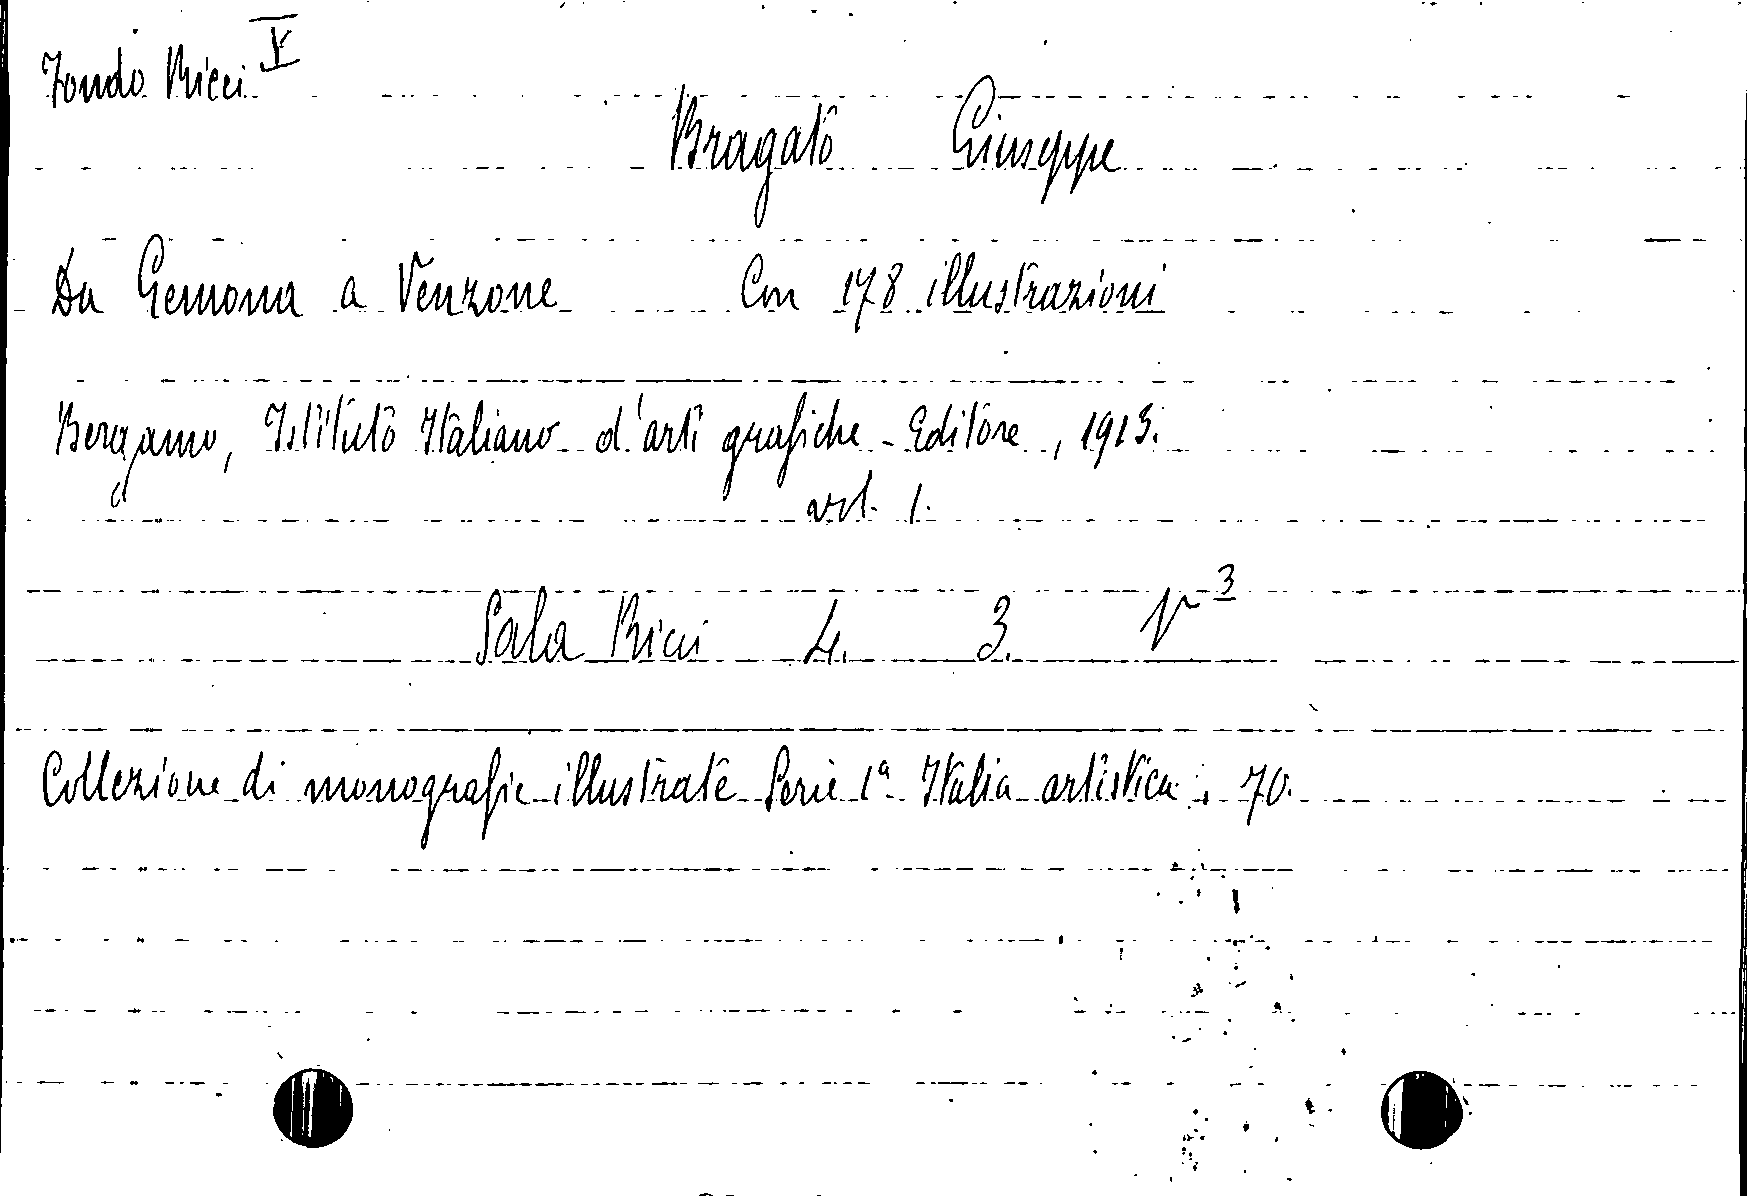 Fondo Ricci V
Bragato Giuseppe
Da Gemona a Venzone Con 178 illustrazioni
Bergamo, Istituto Italiano d'arti grafiche - Editore, 1913.
vol. 1.
Sala Ricci 4. 3. V 3
Collezione di monografie illustrate Serie 1ª Italia artistica, 70.